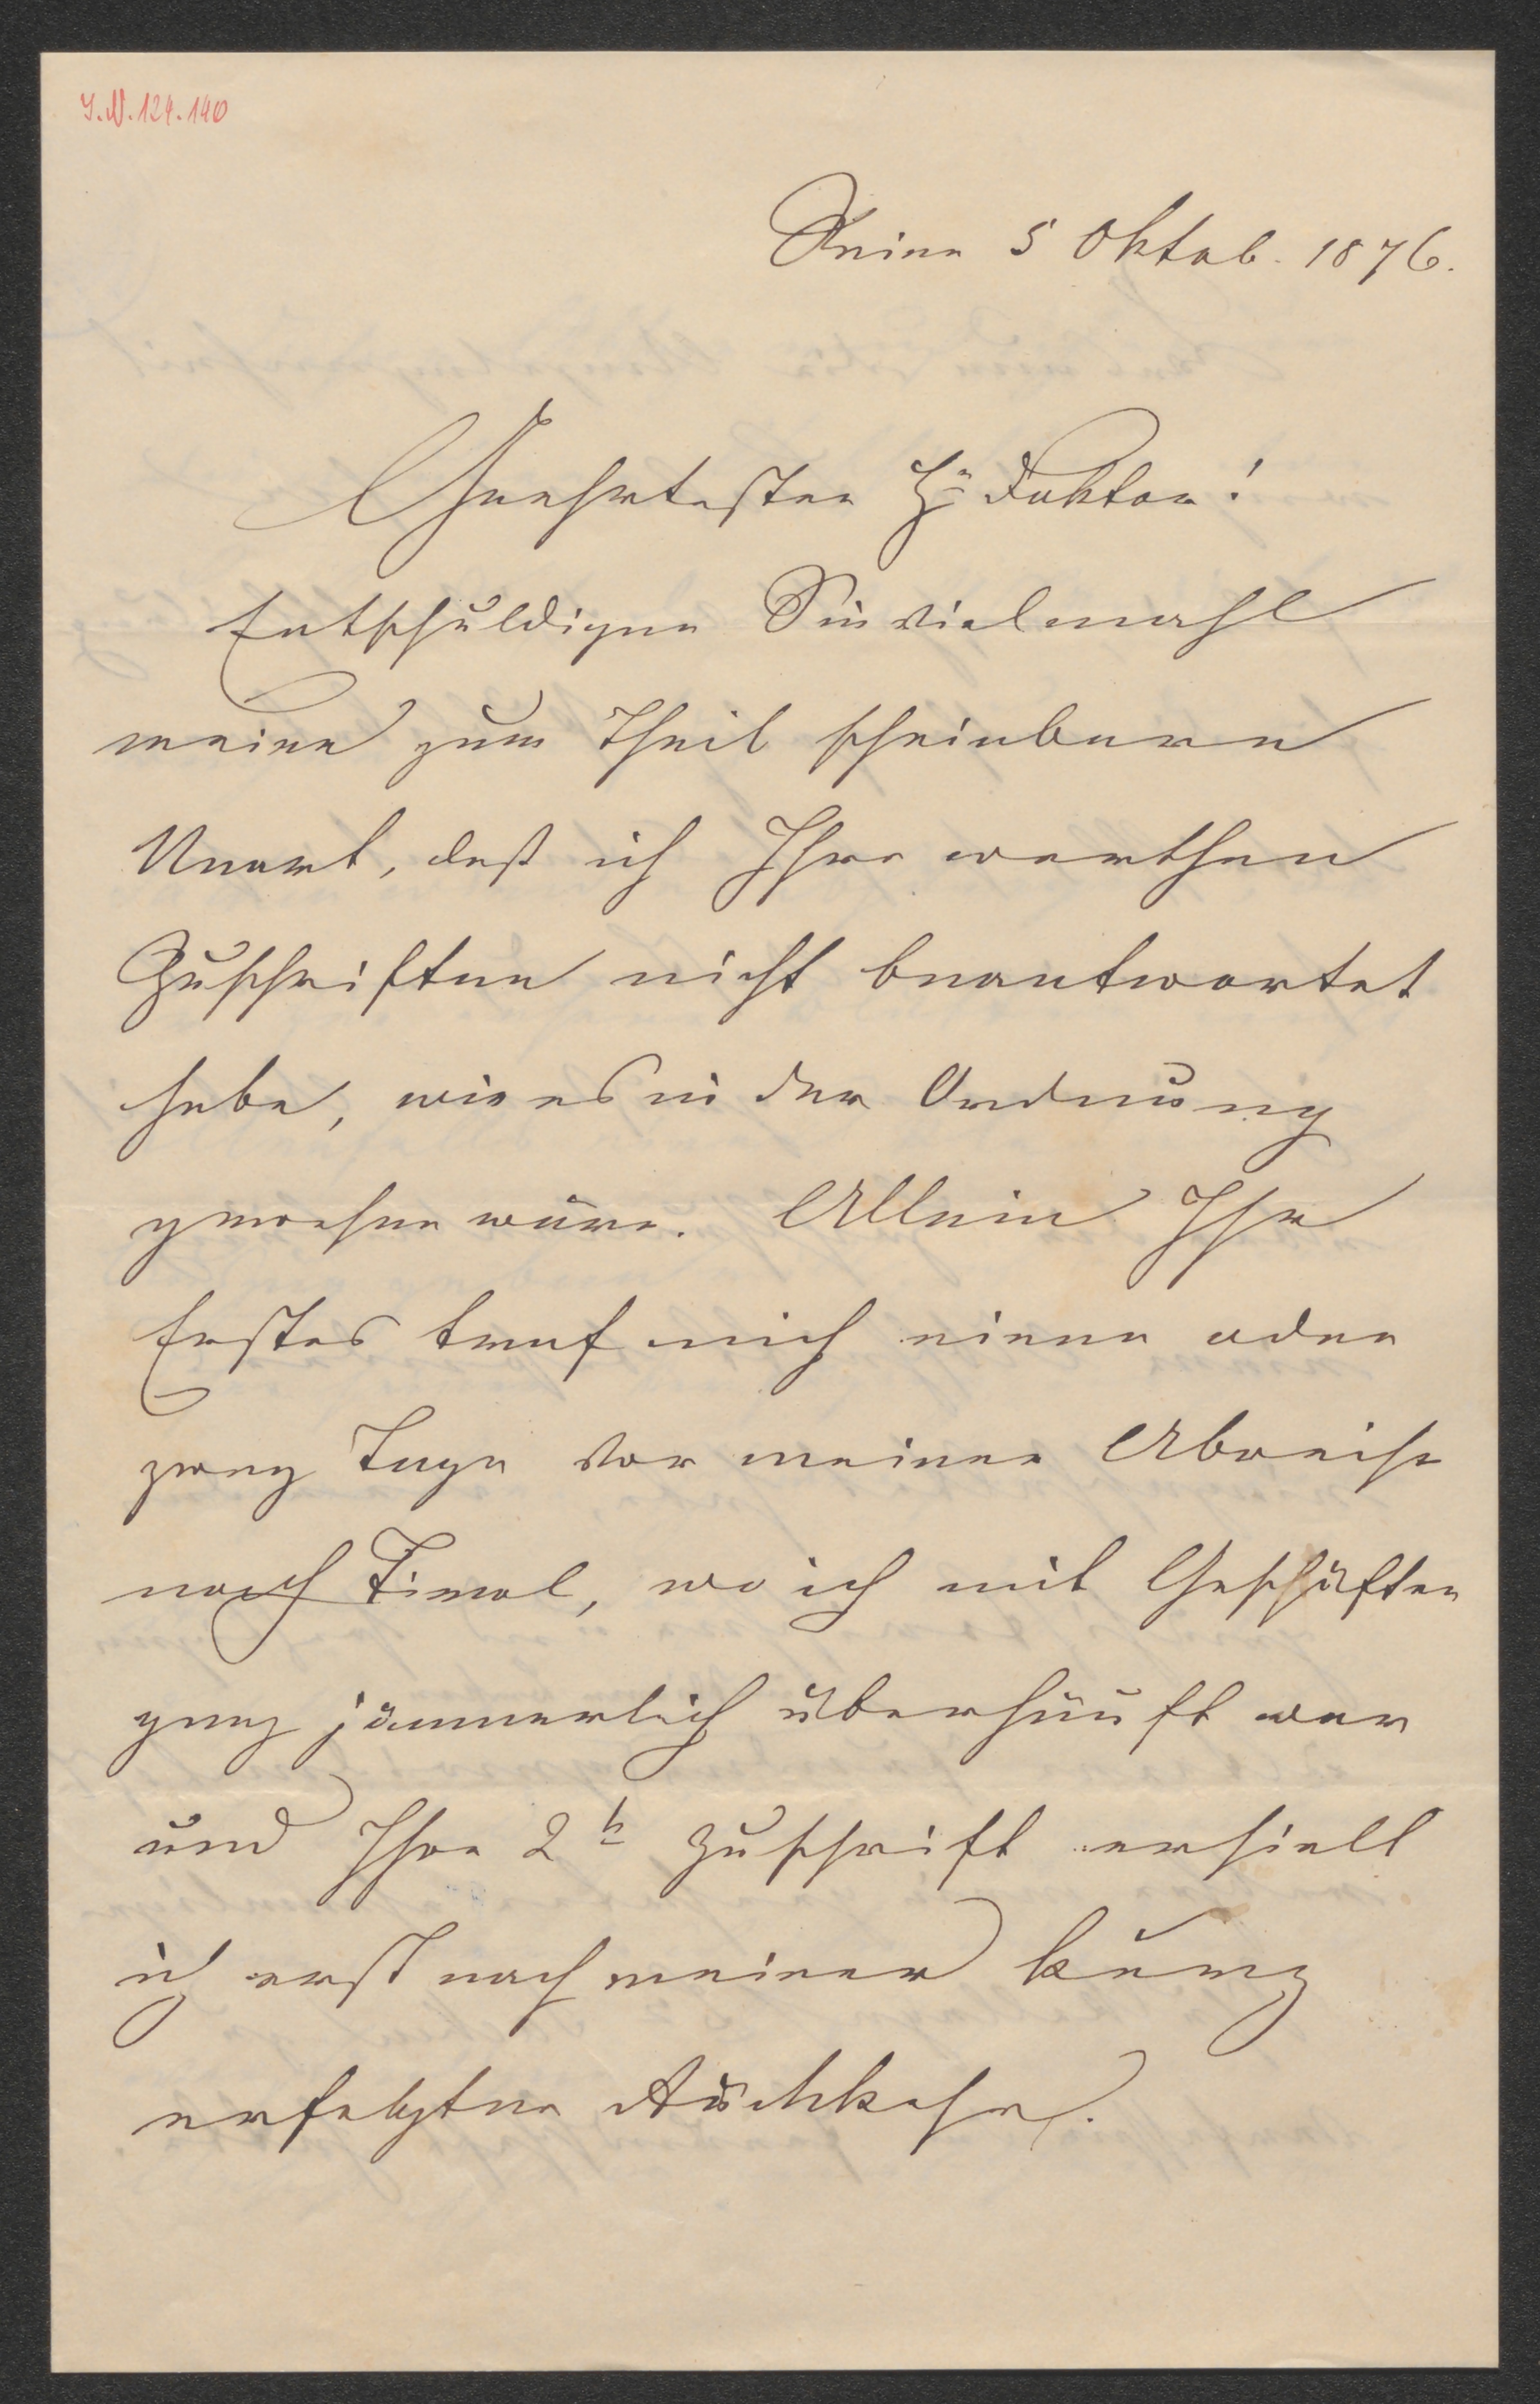 I.N. 124.140
5 Oktob. 1876.
Geehrtester H: Doktor!
Entschuldigen Sie vielmahl
meine zum Theil scheinbare
Unart, daß ich Ihre werthen
Zuschriften nicht beantwortet
habe, wie es in der Ordnung
gewesen wäre. Allein Ihr
Erstes traf mich einen oder
zwey Tage vor meiner Abreise
nach Tirol, wo ich mit Geschäften
ganz jämmerlich überhäuft war
und Ihre 2t Zuschrift erhielt
ich erst nach meiner
erfolgten Rückkehr.